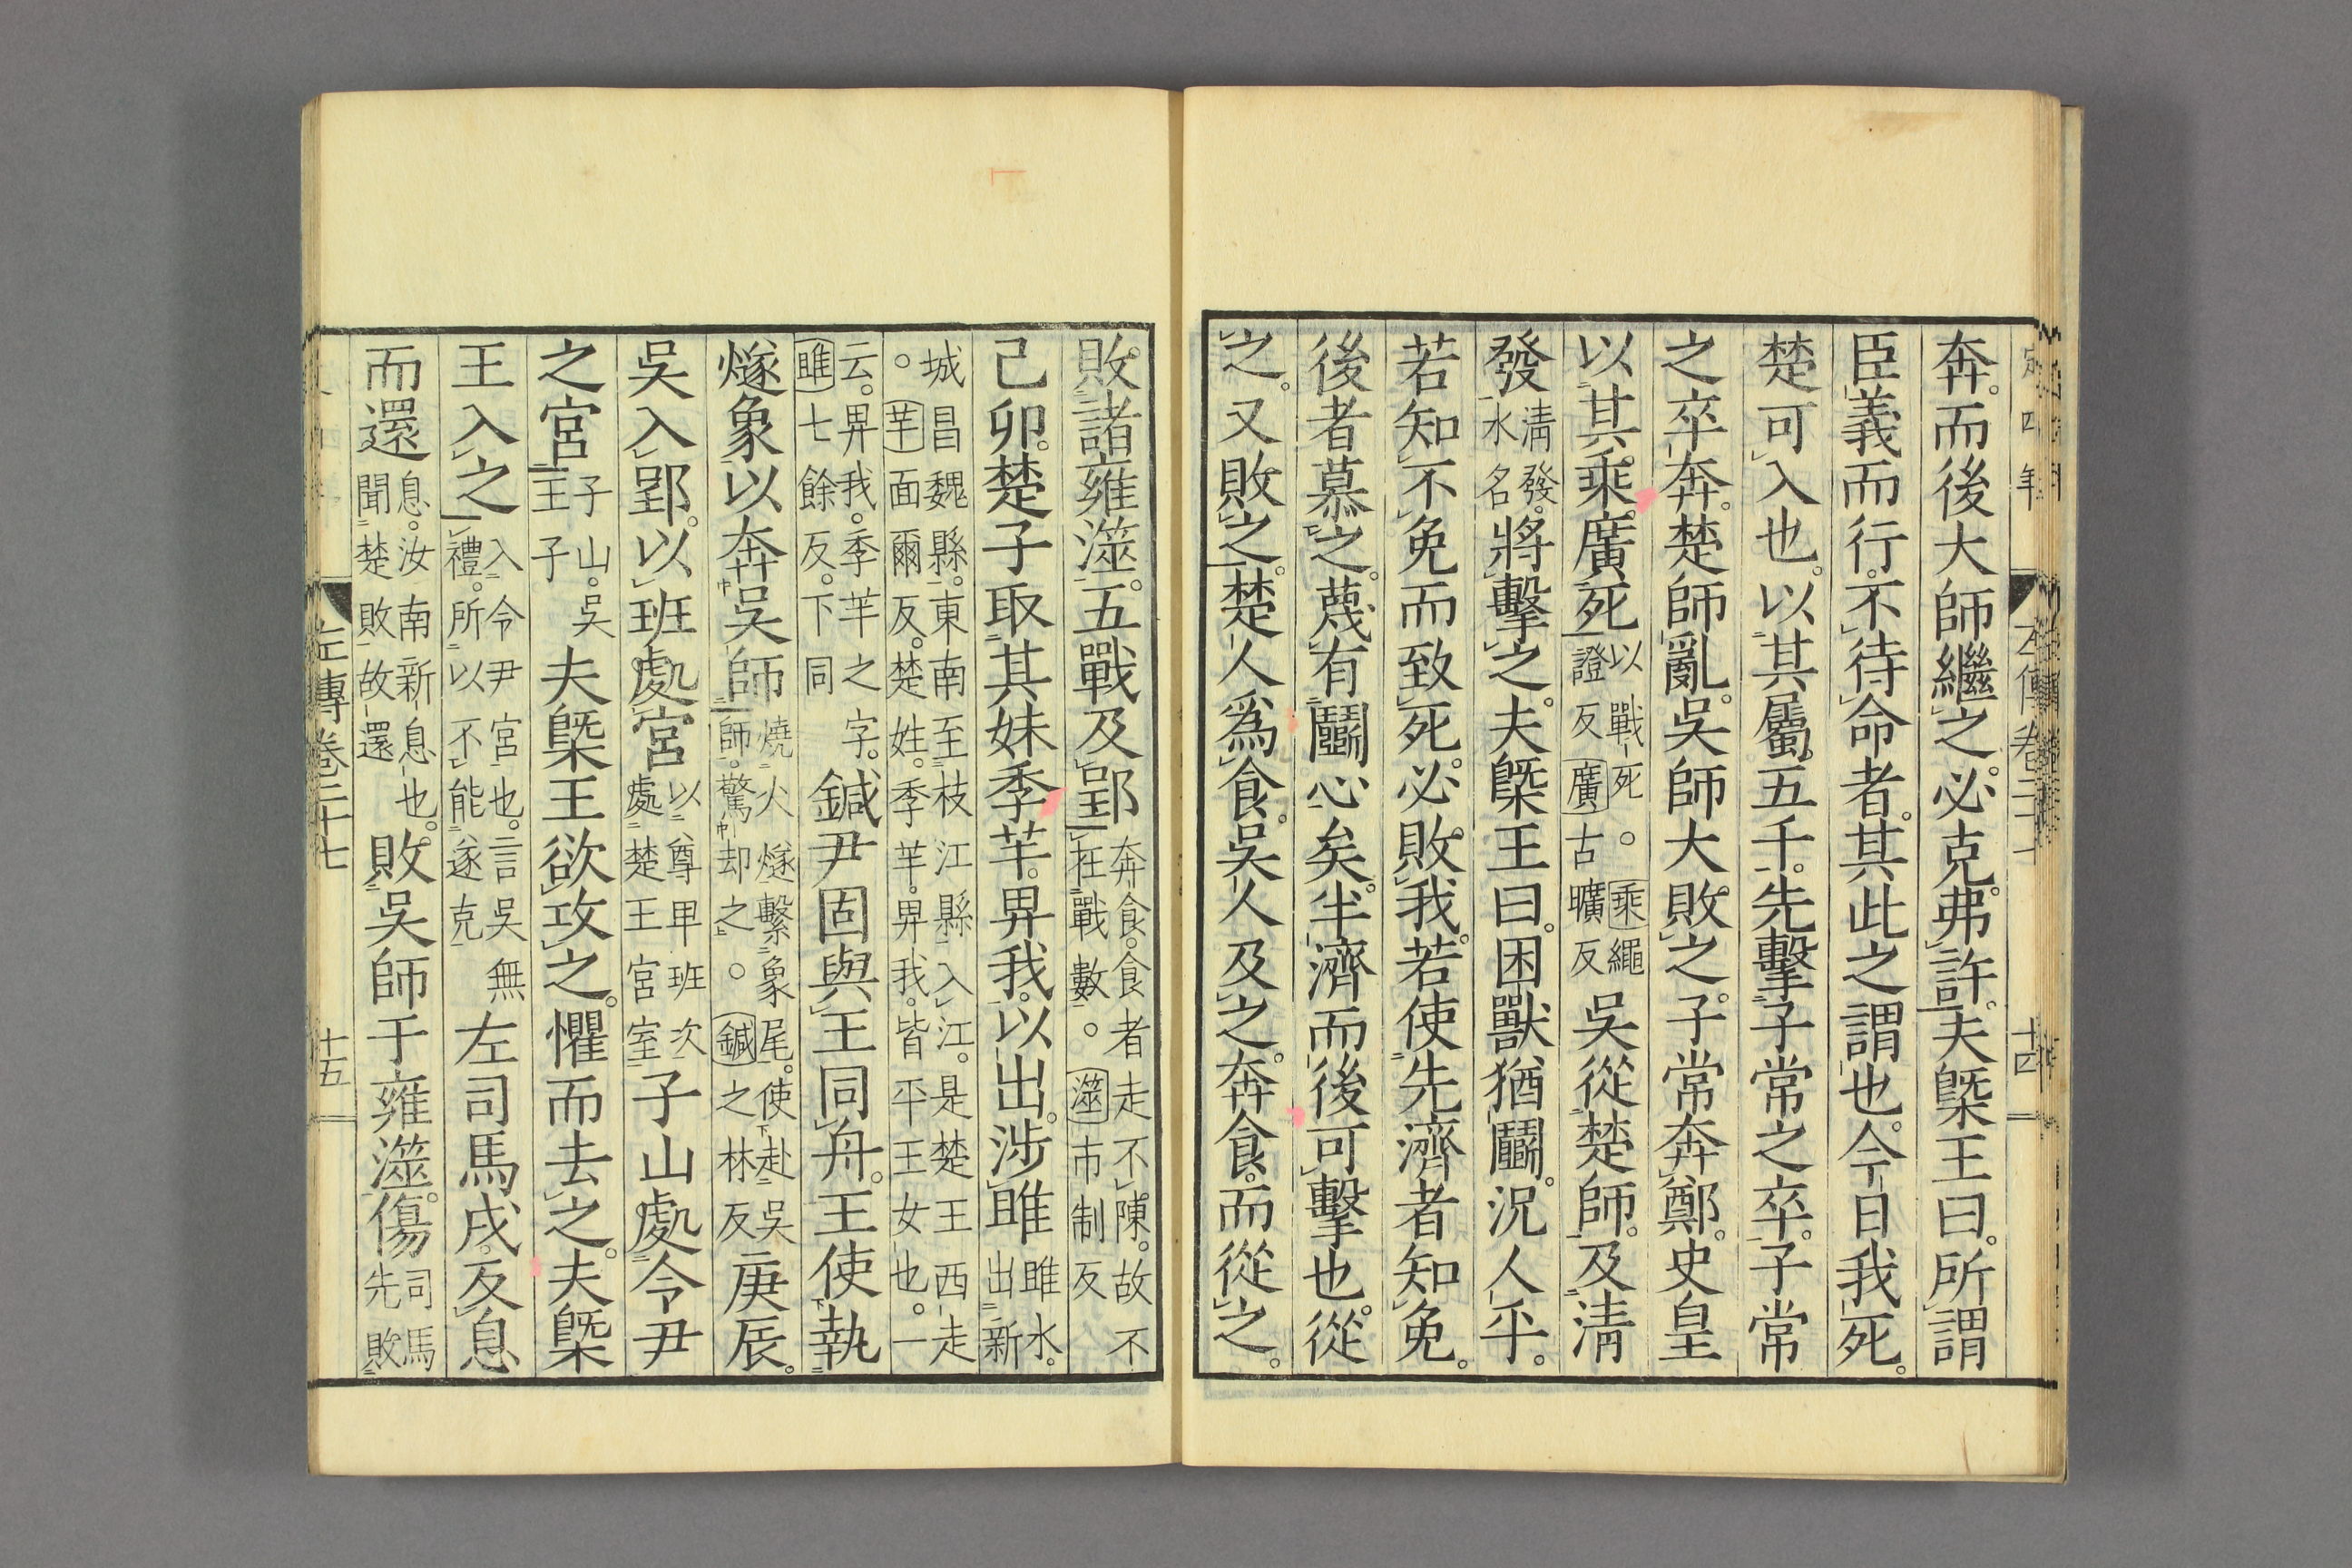 奔。而後大師繼之。必克。弗許。夫槩王曰。所謂
臣義而行。不待命者。其此之謂也。今日我死。
楚可入也。以其屬五千。先擊子常之卒。子常
之卒奔。楚師亂。吳師大敗之。子常奔鄭。史皇
以其乘廣死
以戰死。○乘繩
證反廣古曠反
吳從楚師。及淸
發
淸發。
水名
將擊之。夫槩王曰。困獸猶鬭。況人乎。
若知不免而致死。必敗我。若使先濟者知免。
後者慕之。蔑有鬭心矣。半濟而後可擊也。從
之。又敗之。楚人爲食。吳人及之。奔。食而從之。
敗諸雍澨。五戰及郢
奔食。食者走不陳。故不
在戰數。○澨市制反
己卯。楚子取其妹季芉。畀我。以出。涉雎
雎水。
出新
城昌魏縣。東南至枝江縣入江。是楚王西走
○芉面爾反。楚姓。季芉。畀我。皆平王女也。一
云。畀我。季芉之字。
雎七餘反。下同
鍼尹固與王同舟。王使執
燧象以奔吳師
燒火燧繫象尾。使赴吳
師。驚却之。○鍼之林反
庚辰。
吳入郢。以班處宮
以尊卑班次
處楚王宮室
子山處令尹
之宮
子山。吳
王子
夫槩王欲攻之。懼而去之。夫槩
王入之
入令尹宮也。言吳無
禮。所以不能遂克
左司馬戌。反息
而還
息。汝南新息也。
聞楚敗故還
敗吳師于雍澨。傷
司馬
先敗
左傳卷二十七
十五
十四